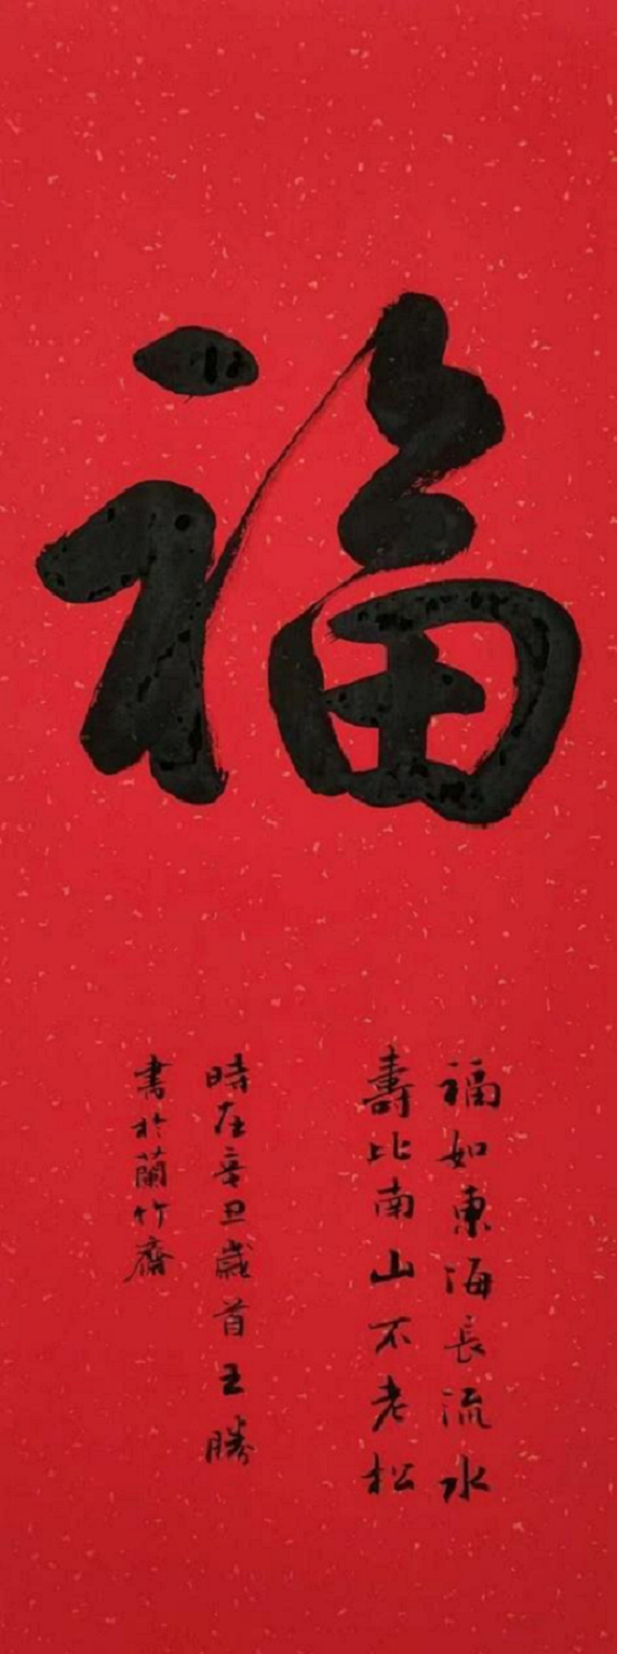 福
福如東海長流水
壽比南山不老松
時在辛丑歲首王勝
書於蘭竹齋